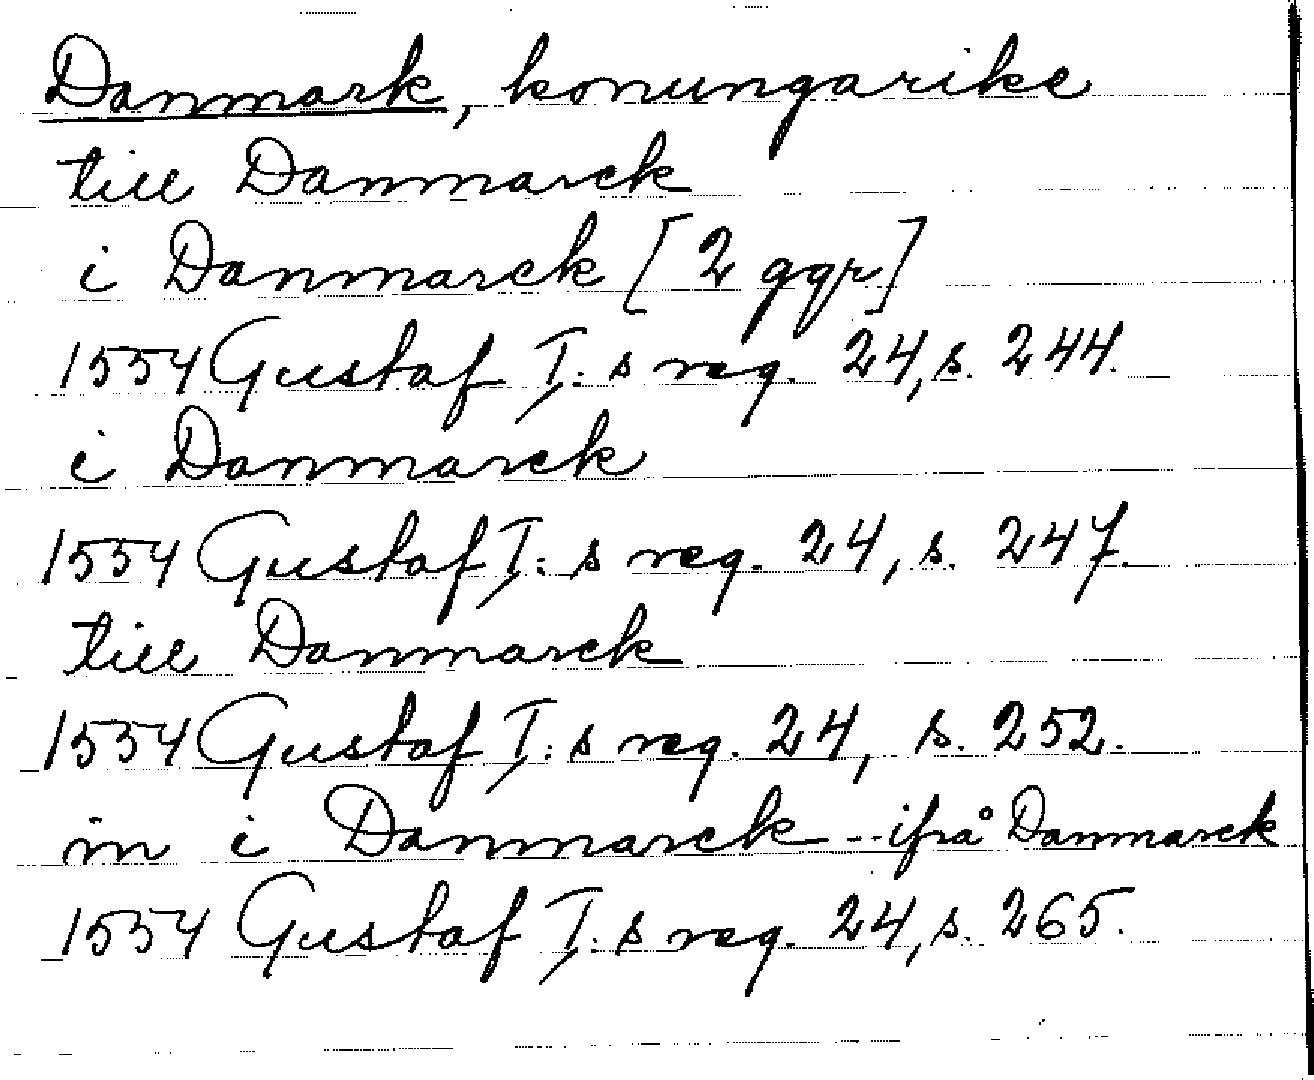 Danmark, konungarike
till Danmarck
i Danmarck [2 ggr]
1554 Gustaf I:s reg. 24, s. 244.
i Danmarck
1554 Gustaf I:s reg. 24, s. 247.
till Danmarck
1554 Gustaf I:s reg. 24, s. 252.
in i Danmarck -- ifrå Danmarck
1554 Gustaf I:s reg. 24, s. 265.